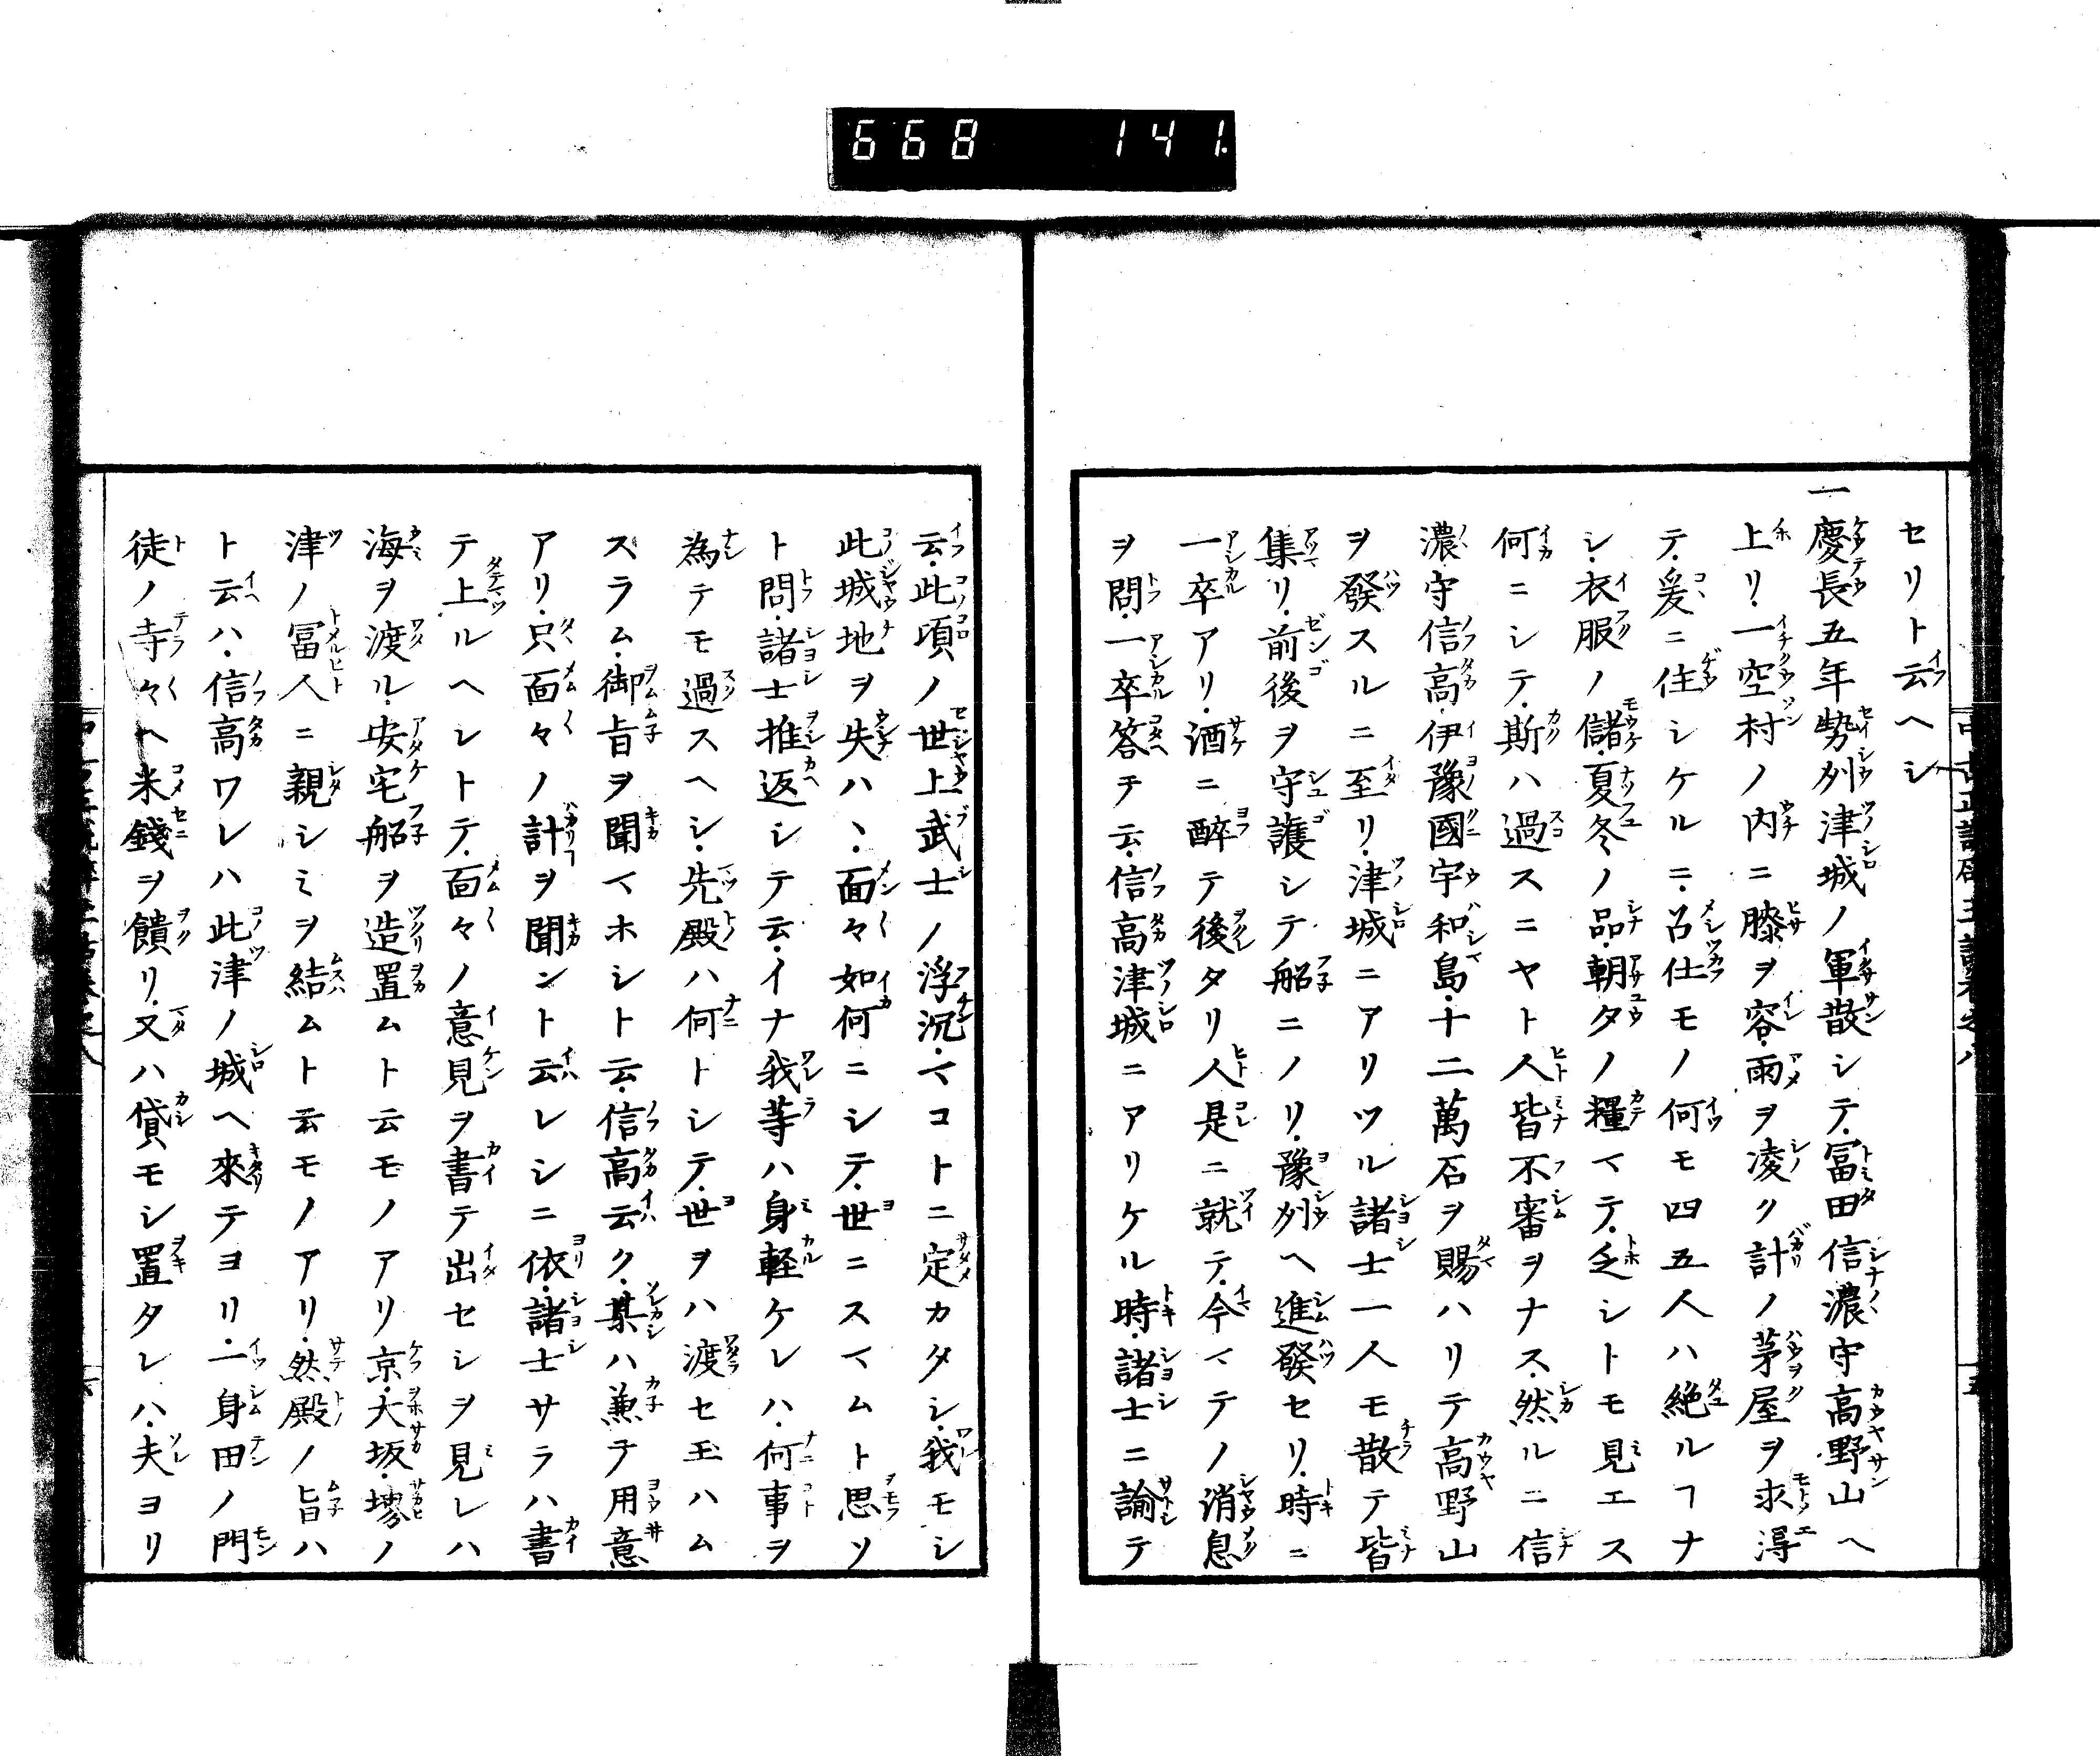 668 141
セリト云ヘシ
一慶長五年勢州津城ノ軍散シテ冨田信濃守高野山ヘ
上リ一空村ノ内ニ膝ヲ容雨ヲ凌ク計ノ茅屋ヲ求淂
テ爰ニ住シケルニ召仕モノ何モ四五人ハ絶ルヿナ
シ衣服ノ儲夏冬ノ品朝夕ノ糧マテ乏シトモ見エス
何ニシテ斯ハ過スニヤト人皆不審ヲナス然ルニ信
濃守信高伊豫國宇和島十二萬石ヲ賜ハリテ高野山
ヲ發スルニ至リ津城ニアリツル諸士一人モ散テ皆
集リ前後ヲ守護シテ船ニノリ豫州ヘ進發セリ時ニ
一卒アリ酒ニ醉テ後タリ人是ニ就テ今マテノ消息
ヲ問一卒答テ云信高津城ニアリケル時諸士ニ諭テ
云此頃ノ世上武士ノ浮沉マコトニ定カタシ我モシ
此城地ヲ失ハヽ面々如何ニシテ世ニスマムト思ソ
ト問諸士推返シテ云イナ我等ハ身軽ケレハ何事ヲ
為テモ過スヘシ先殿ハ何トシテ世ヲハ渡セ玉ハム
スラム御旨ヲ聞マホシト云信高云ク某ハ兼テ用意
アリ只面々ノ計ヲ聞ント云レシニ依諸士サラハ書
テ上ルヘシトテ面々ノ意見ヲ書テ出セシヲ見レハ
海ヲ渡ル安宅船ヲ造置ムト云モノアリ京大坂堺ノ
津ノ冨人ニ親シミヲ結ムト云モノアリ然殿ノ旨ハ
ト云ハ信高ワレハ此津ノ城ヘ來テヨリ一身田ノ門
徒ノ寺々ヘ米錢ヲ饋リ又ハ貸モシ置タレハ夫ヨリ